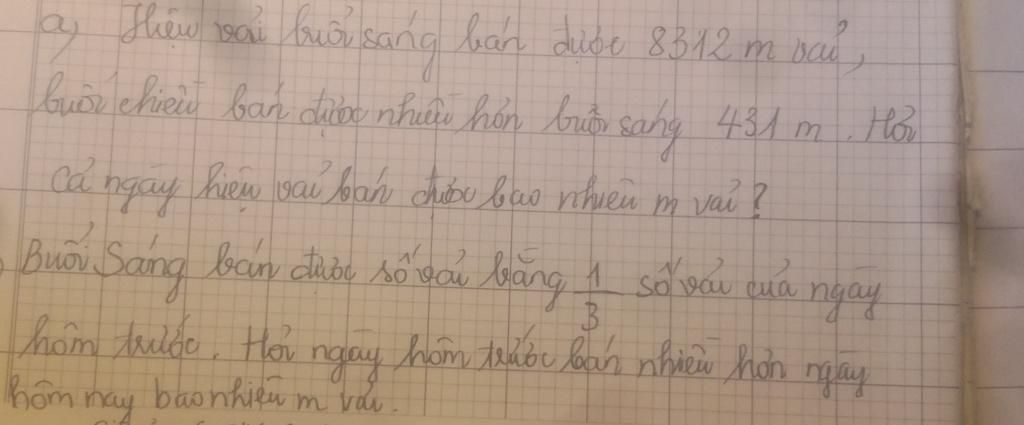 a) Hiệu vải buổi sáng bán được 8312 m vải,
buổi chiều bán được nhiều hơn buổi sáng 431 m. Hỏi
cả ngày hiệu vải bán được bao nhiêu m vải?
Buổi Sáng bán được số vải bằng 1/3 số vải của ngày
hôm trước. Hỏi ngày hôm trước bán nhiều hơn ngày
hôm nay bao nhiêu m vải.